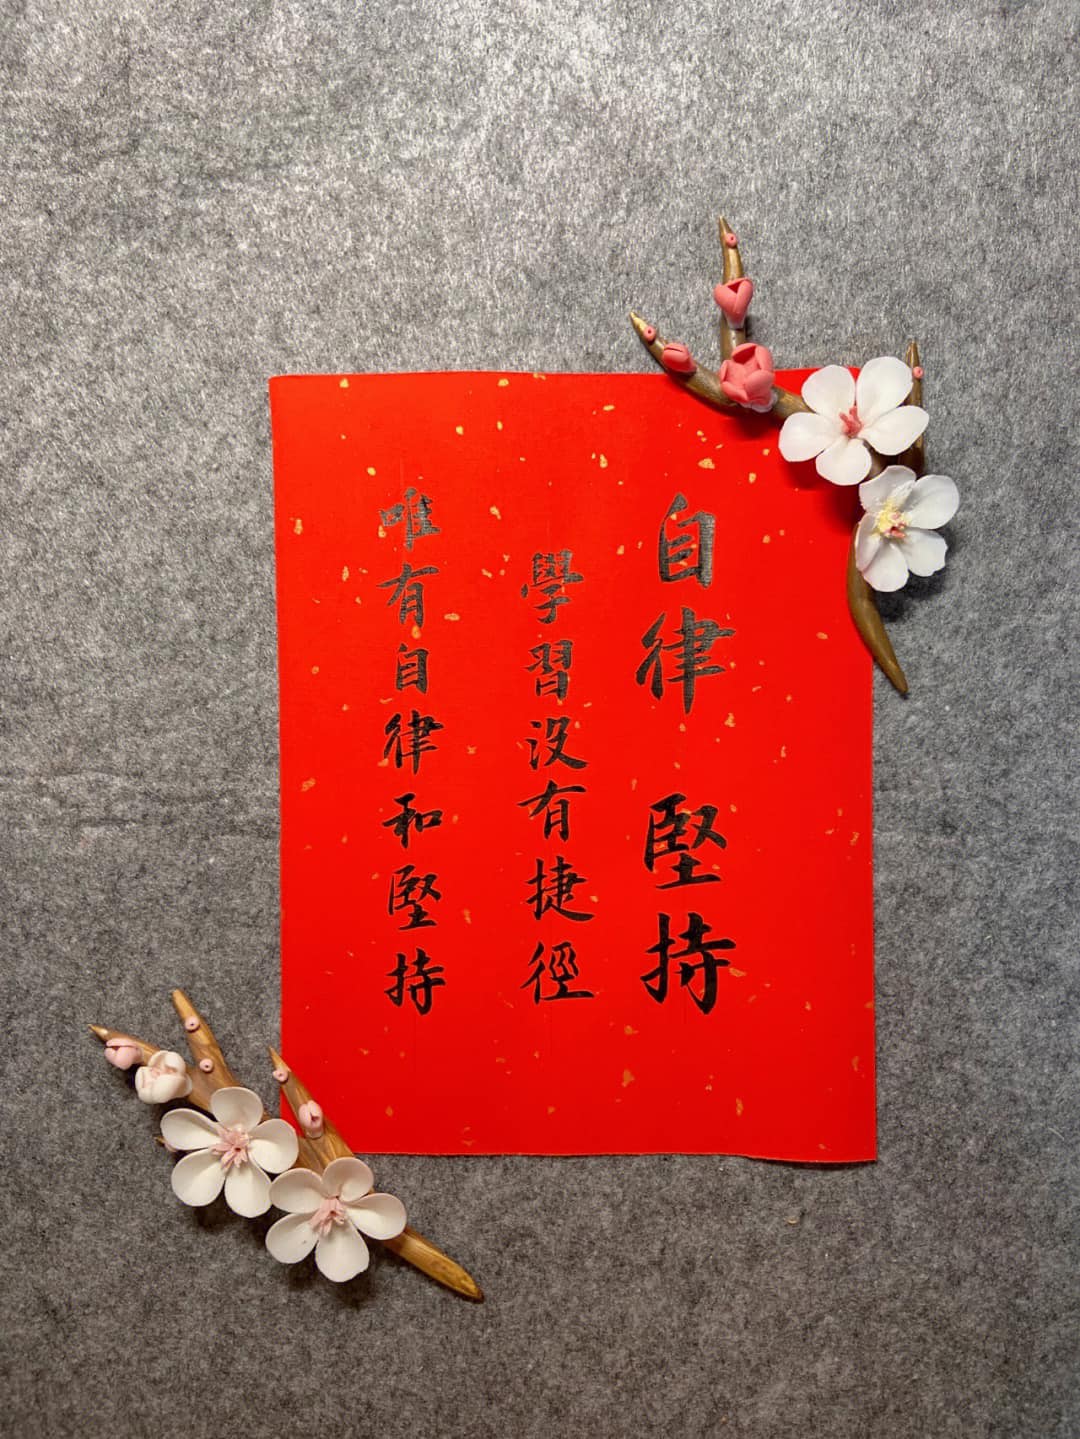 自律 堅持
學習没有捷徑
唯有自律和堅持